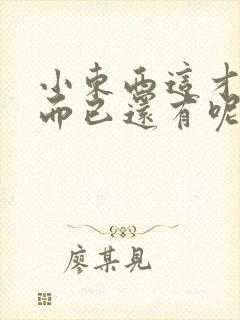 小東西這才
而已還有呢
廖某見